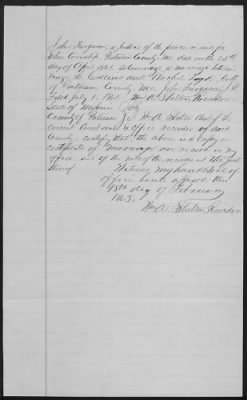 John Ferguson, a Justice of the peace in and for
Elm Township, Putnam County, Mo. did on the 25th
day of April 1861 solemnize a marriage between
Collins and Rachel Boyd, both
of Putnam County Mo. John Ferguson J.P.
Filed July 1, 1861. Wm A. Shelton, Recorder
State of Missouri
County of Putnam I Wm A. Shelton Clerk of the
Circuit Court and Ex officio recorder of said
County certify that the above is a copy of
certificate of marriage on record in my
office
thereof Witness my hand & seal of
office hereto affixed this
18th day of February
Wm A. Shelton, Recorder